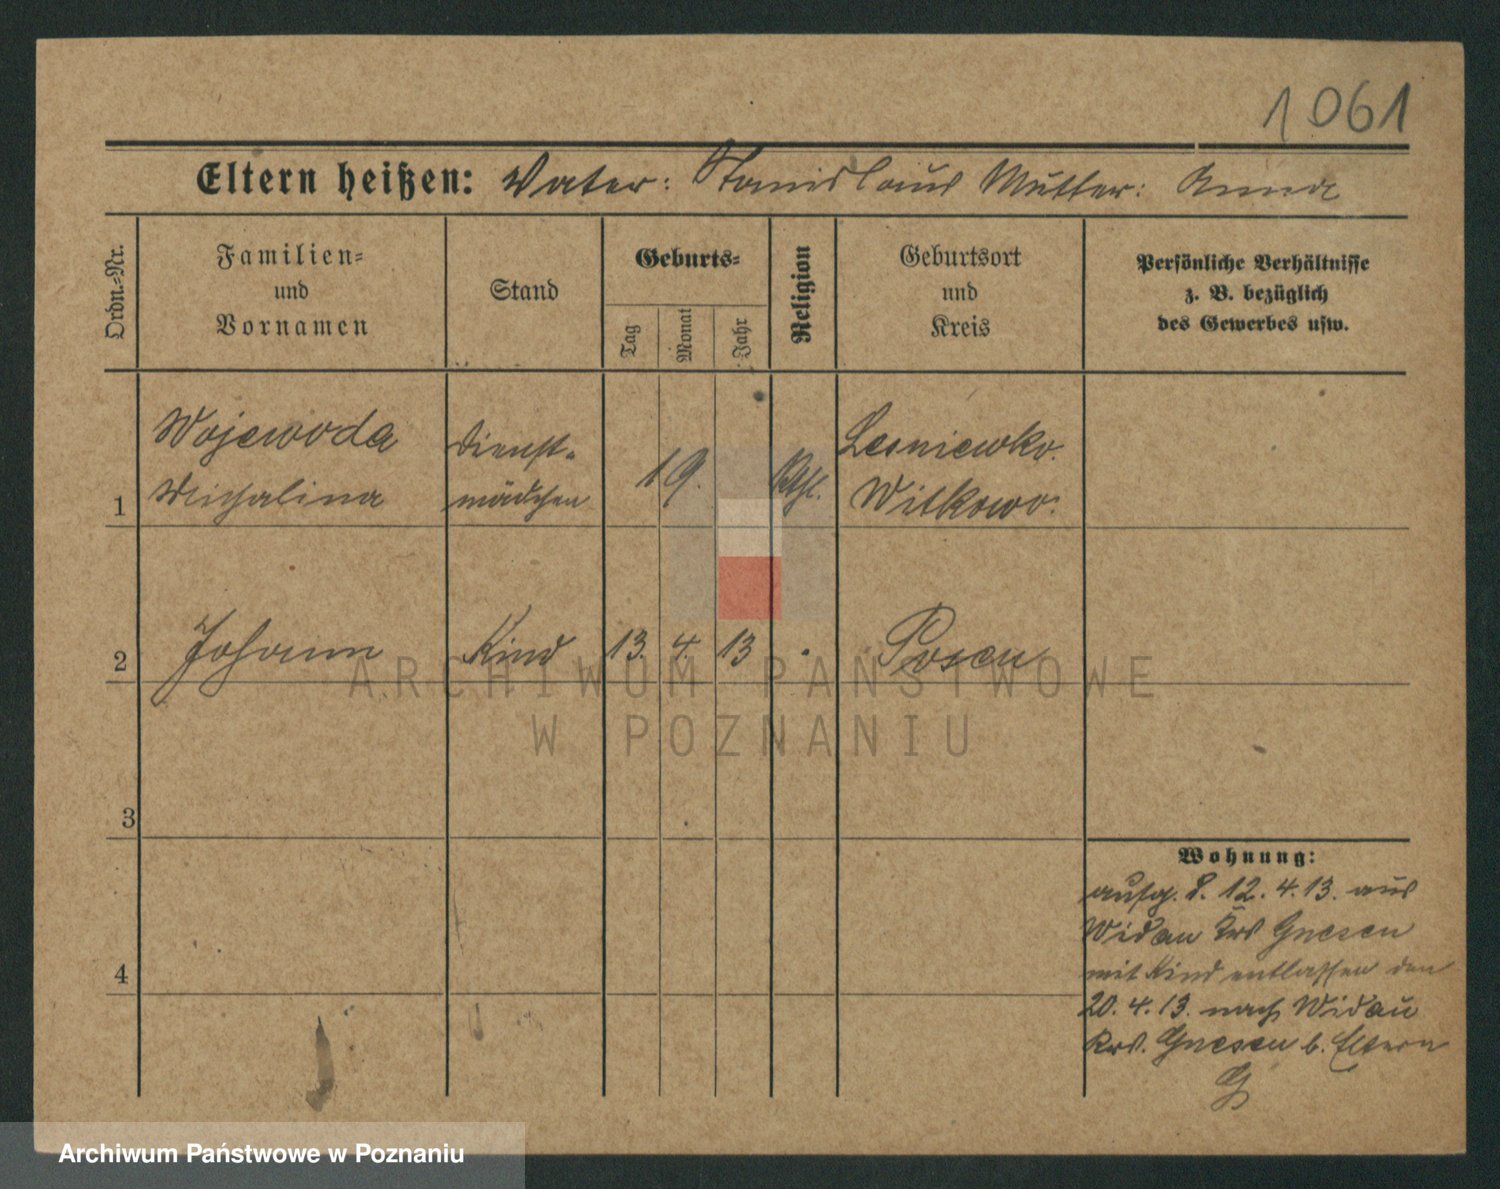 1061
Eltern heißen: Vater: Stanislaus Mutter: Anna
Ordn.-Nr.
Familien-
und
Vornamen
Stand
Geburts-
Tag
Monat
Jahr
Religion
Geburtsort
und
Kreis
Persönliche Verhältnisse
z. B. bezüglich
des Gewerbes usw.
1
Wojewoda
Michalina
Dienst-
mädchen
19.
Kthl.
Lesniewko.
Witkowo.
2
Johann
Kind
13. 4. 13
Posen
3
4
Wohnung:
aufg. d. 12. 4. 13. aus
Widau Krs Gnesen
mit Kind entlassen den
20. 4. 13. nach Widau
Krs. Gnesen b. Eltern
G
ARCHIWUM PAŃSTWOWE
W POZNANIU
Archiwum Państwowe w Poznaniu